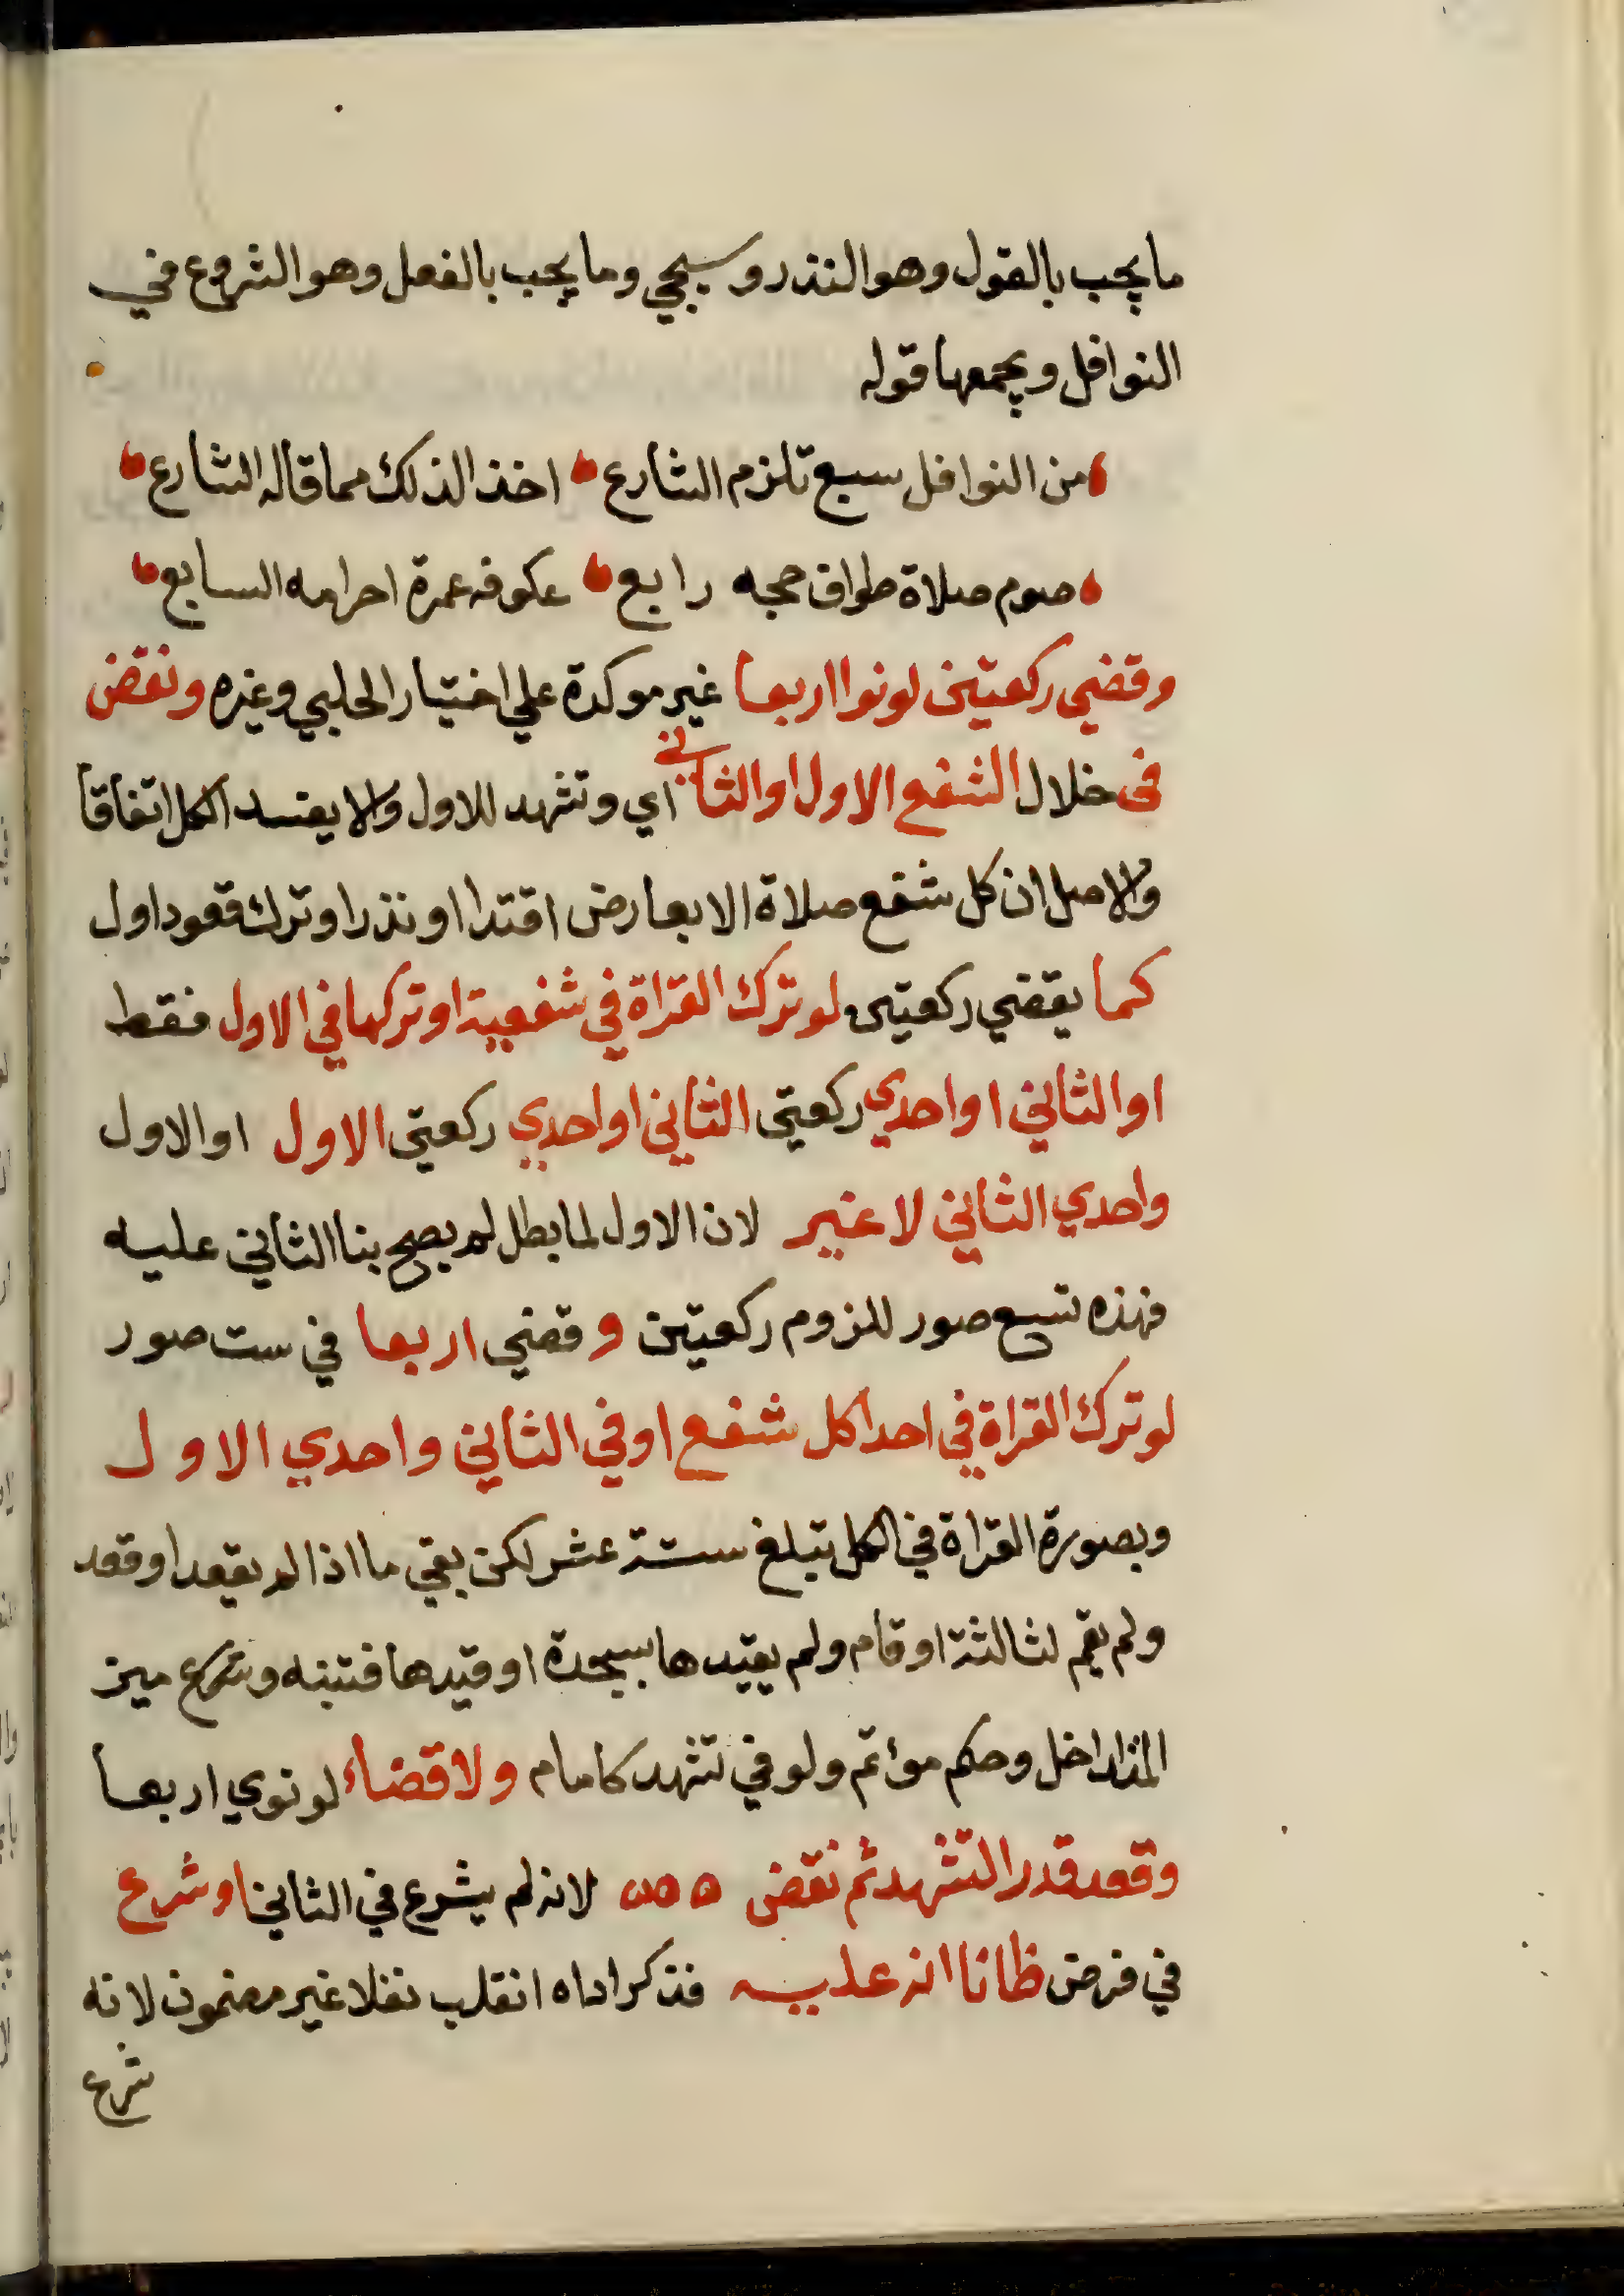 ما يجب بالقول وهو النذر وسيجي وما يجب بالفعل وهو الشروع في
النوافل ويجمعها قوله
من النوافل سبع تلزم الشارع اخذ الذلك مما قاله الشارع
صوم صلاة طواف حجه رابع عكوفه عمرة احرامه السابع
وقضي ركعتين لو نوا اربعا غير موكدة علي اختيار الحلبي وغيره ونقض
في خلال الشفع الاول او الثاني اي وتشهد للاول والا يفسد الكل اتفاقا
والاصل ان كل شفع صلاة الا بعارض اقتدا او نذر او ترك قعود اول
كما يقضي ركعتين لو ترك القراة في شفعيه او تركها في الاول فقط
او الثاني او احدي ركعتي الثاني او احدي ركعتي الاول او الاول
واحدي الثاني لا غير لان الاول لما بطل لم يصح بنا الثاني عليه
فهذه تسع صور للزوم ركعتين وقضي اربعا في ست صور
لو ترك القراة في احدا كل شفع او في الثاني واحدي الاول
وبصورة القراة في الكل تبلغ ستة عشر لكن بقي ما اذا لم يقعد او قعد
ولم يقم لثالثة او قام ولم يقيدها بسجدة او قيدها فتنبه وميز
المتداخل وحكم مؤتم ولو في تشهد كامام ولا قضاء لو نوي اربعا
وقعد قدر التشهد ثم نقض لانه لم يشرع في الثاني او شرع
في فرض ظانا انه عليه فذكر اداه انقلب نفلا غير مضمون لانه
شرع